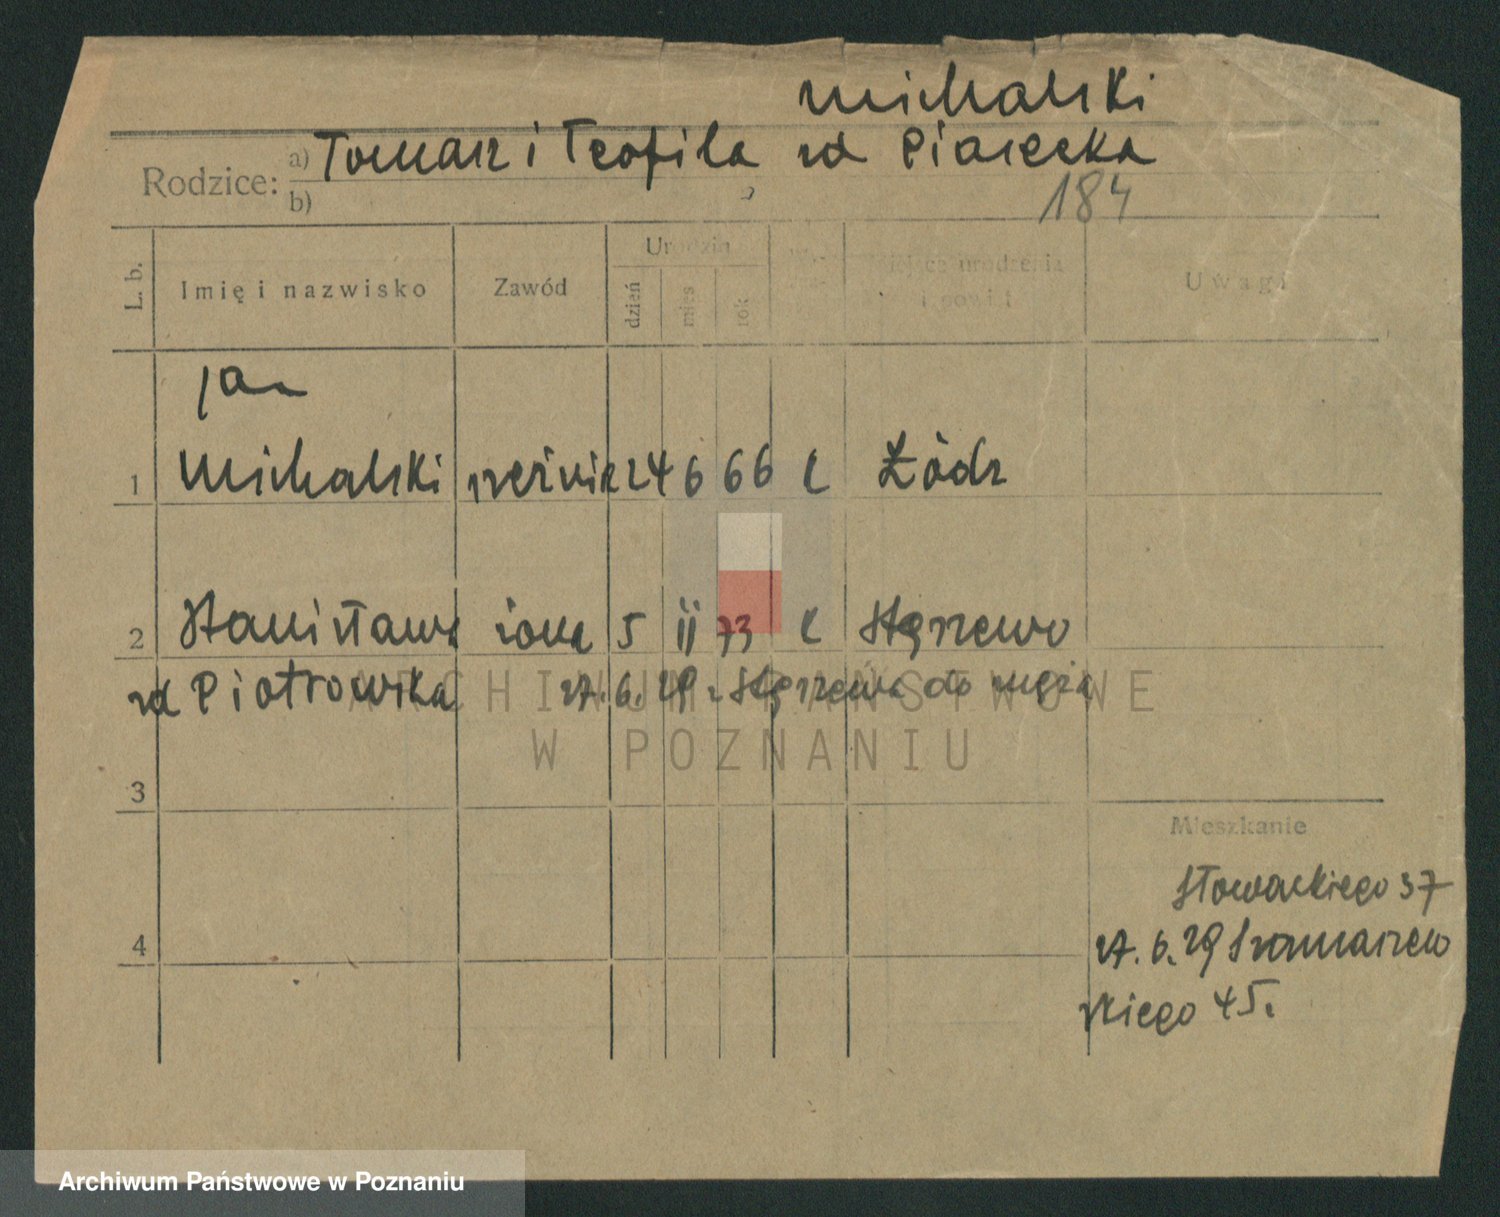 Michalski
Rodzice: a) Tomasz i Teofila zd Piasecka
b)
184
L. b. Imię i nazwisko Zawód Urodzin dzień mies rok Miejsce urodzenia i powiat Uwagi
Jan
1 Michalski rzeźnik 24 6 66 k Łódź
2 Stanisława żona 5 II 73 k Stęszewo
zd Piotrowska 27. 6. 29 z Stęszewa do męża
ARCHIWUM PAŃSTWOWE
W POZNANIU
3
Mieszkanie
Słowackiego 37
4 27. 6. 29 Szamarzew
skiego 45.
Archiwum Państwowe w Poznaniu